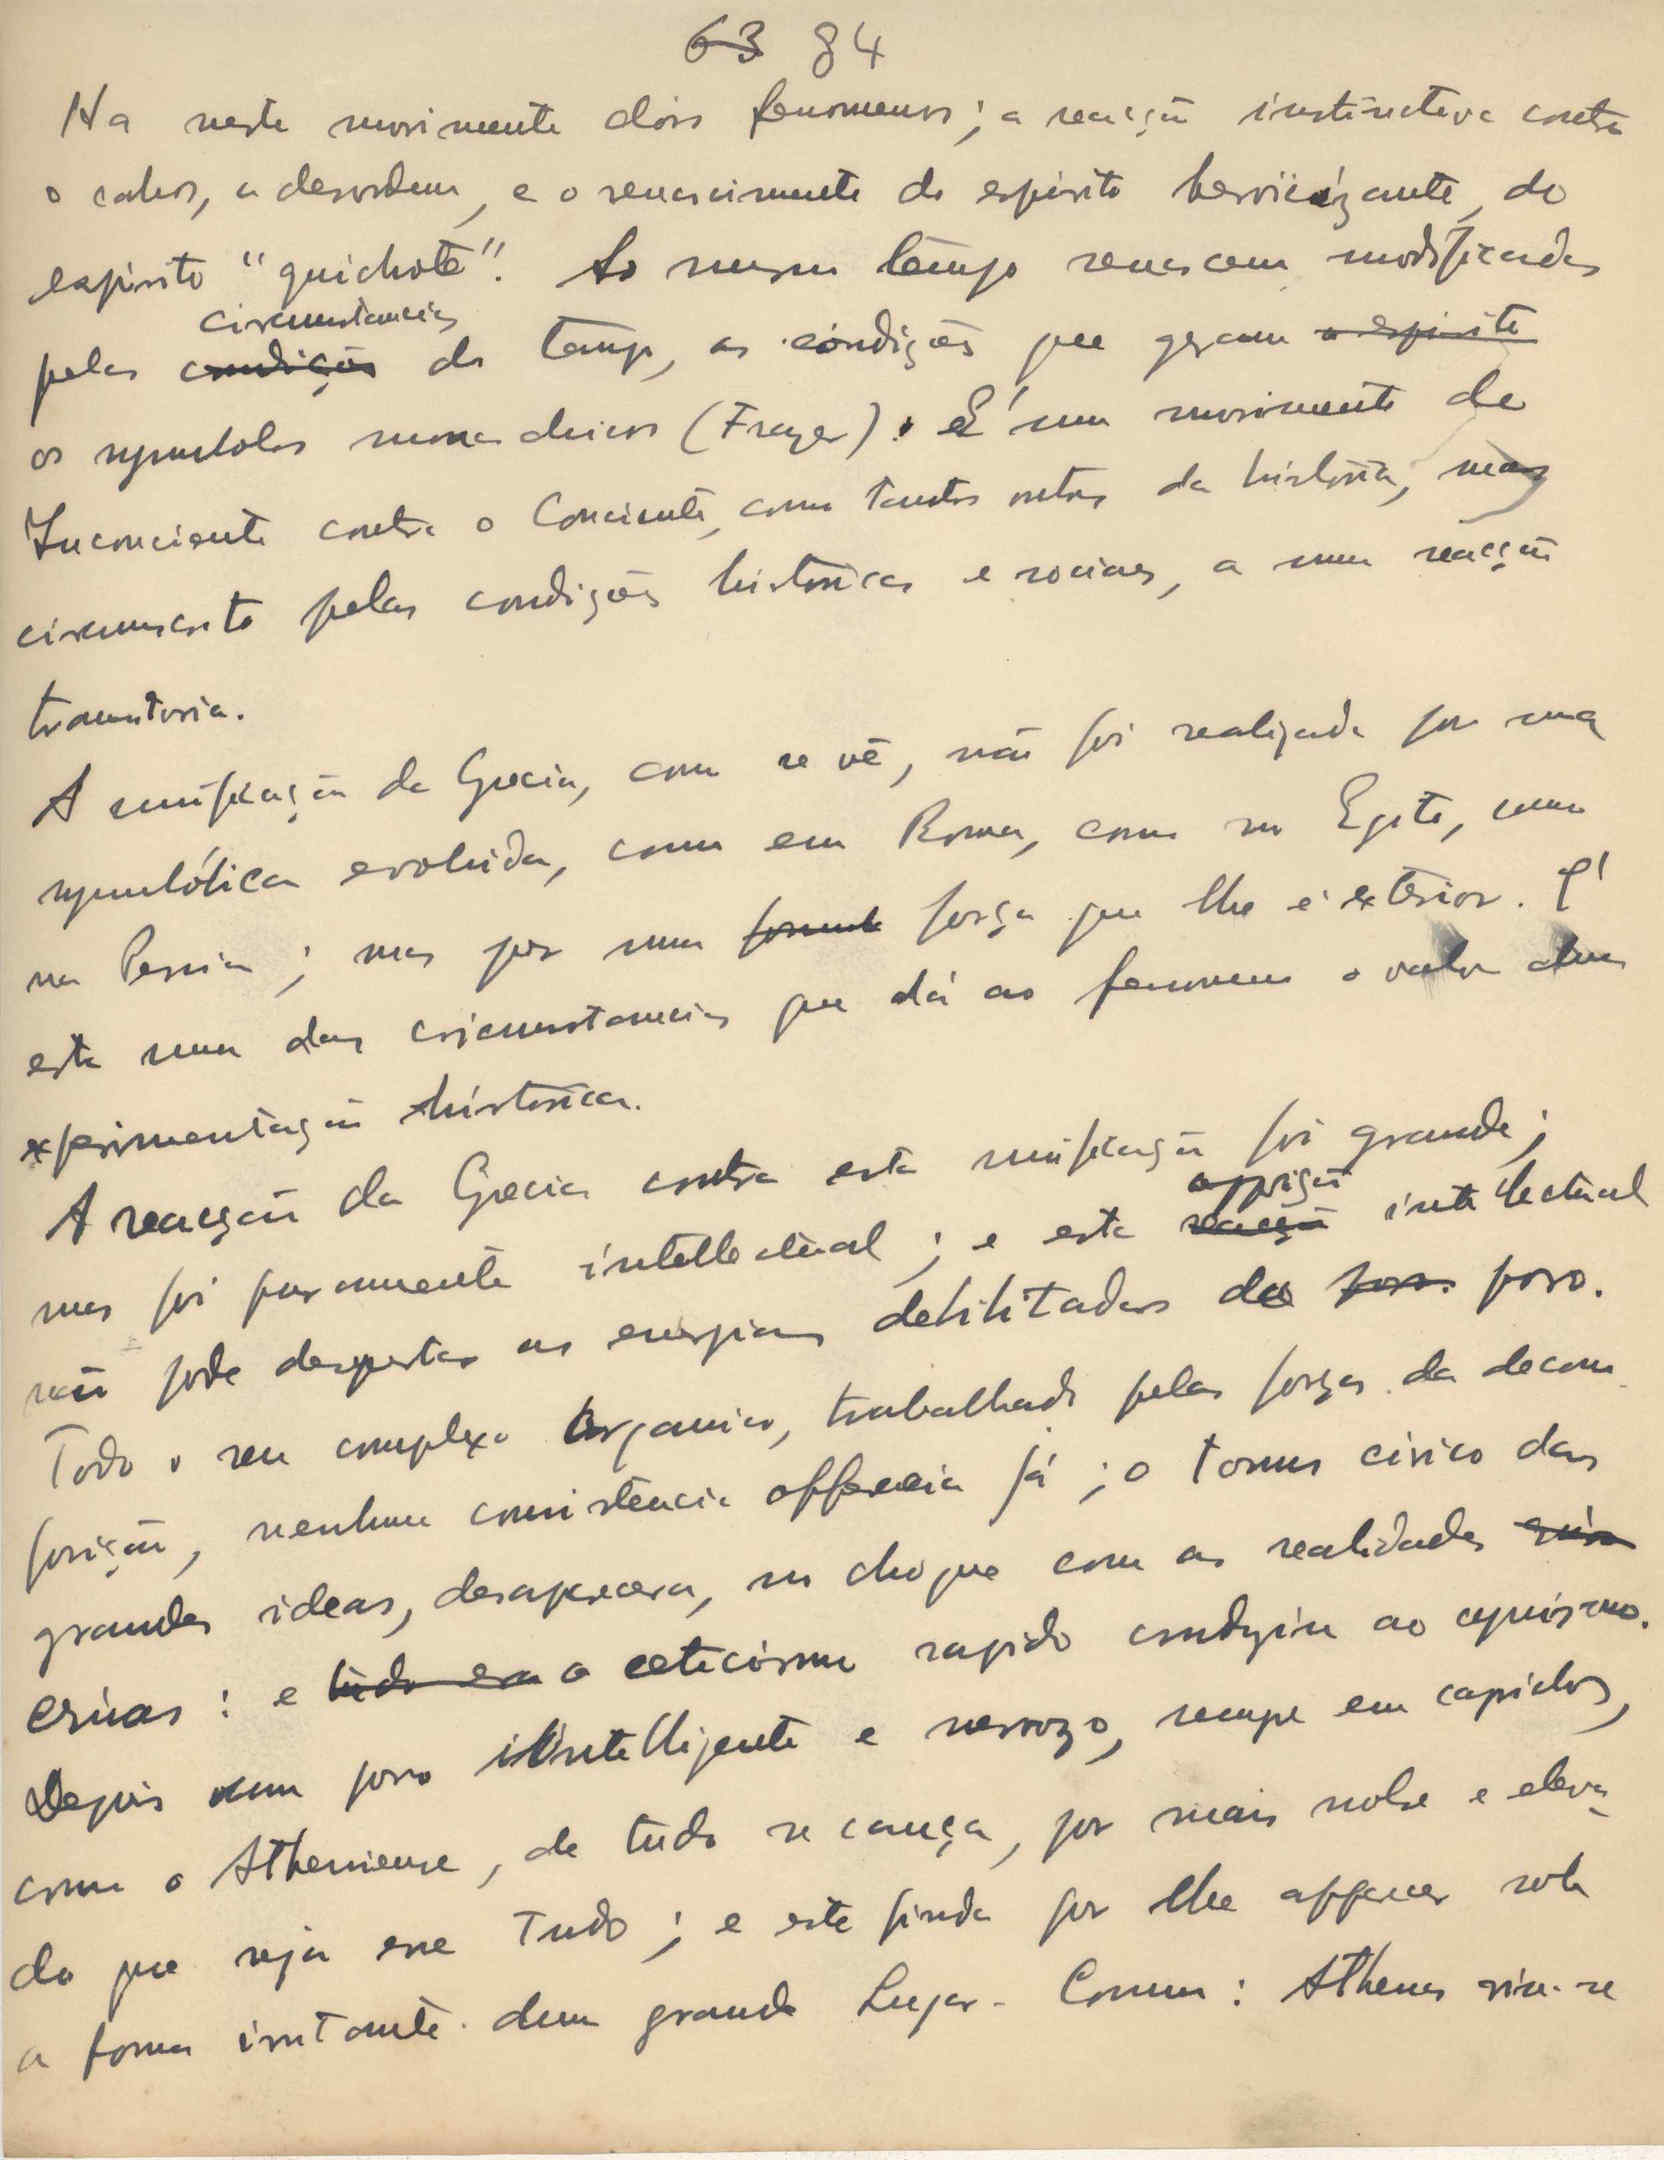 63 84
Ha neste movimento dois fenomenos; a reacção instinctiva contra
o cahos, a desordem, e o renascimento do espirito heroicizante, do
espirito "quichote". Ao mesmo tempo renascem modificadas
circumstancias
pelas condições do tempo, as condições que geram o espirito
os symbolos monarchicos (Frazer). É um movimento do
Inconciente contra o Conciente, como tantos outros da historia, mas
circumscrito pelas condições historicas e sociaes, a uma reacção
transitoria.
A unificação da Grecia, como se vê, não foi realizada por uma
symbólica evoluida, como em Roma, como no Egito, como
na Persia; mas por uma força que lhe é exterior. É
esta uma das circumstancias que dá ao fenomeno o valor duma
experimentação historica.
A reacção da Grecia contra esta unificação foi grande;
opposição
mas foi puramente intellectual; e esta reacção intellectual
não pode despertar as energias debilitadas do povo.
Todo o seu complexo organico, trabalhado pelas forças da decom-
posição, nenhuma consistencia offerecia já; o tonus civico das
grandes ideas, desaparecera, no choque com as realidades
: e tudo era o ceticismo rapido conduziu ao cynismo.
Depois um povo intelligente e nervozo, sempe em capichos,
como o Atheniense, de tudo se cança, por mais nobre e eleva-
do que seja esse Tudo; e este finda por lhe apparecer sob
a forma irritante dum grande Lugar-Comum: Athenas viu-se